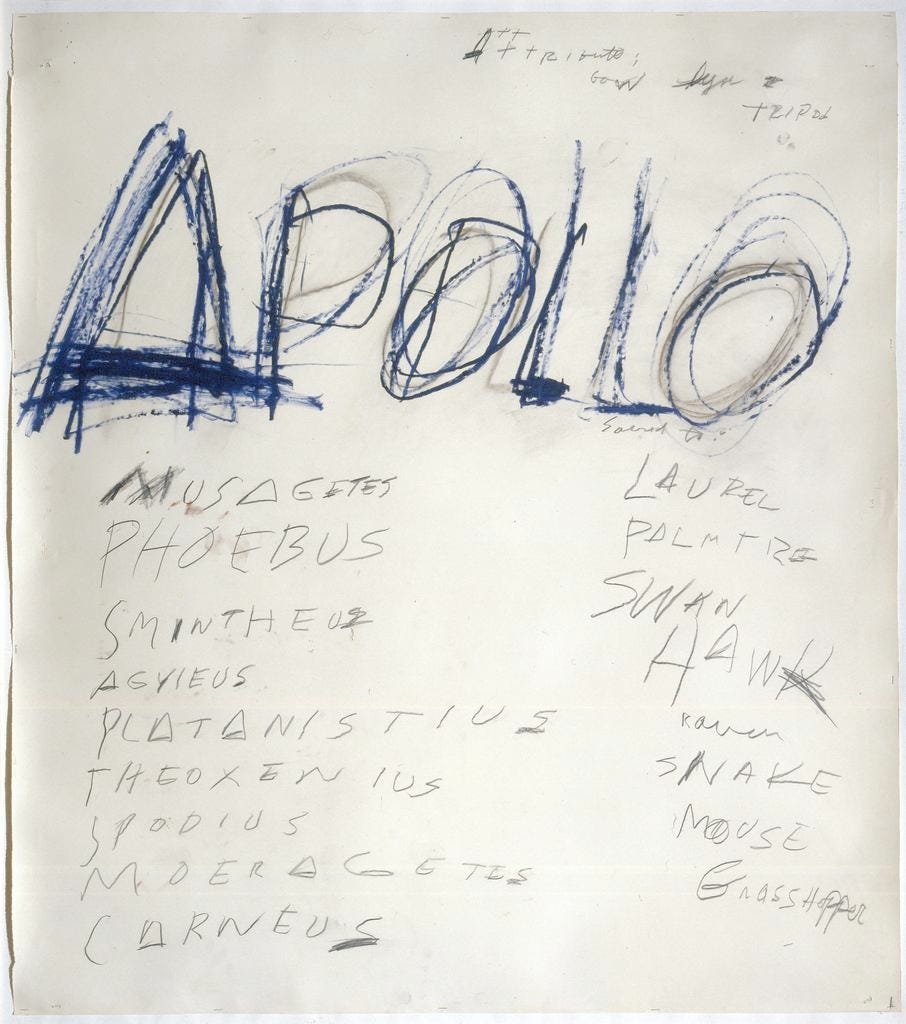 Attribute;
Bow Lyre &
Tripod
APOLLO
Sacred to:
MUSAGETES
PHOEBUS
SMINTHEUS
AGYIEUS
PLATANISTIUS
THEOXENIUS
SPODIUS
MOERAGETES
CARNEUS
LAUREL
PALM TREE
SWAN
HAWK
Raven
SNAKE
MOUSE
GrassHopper